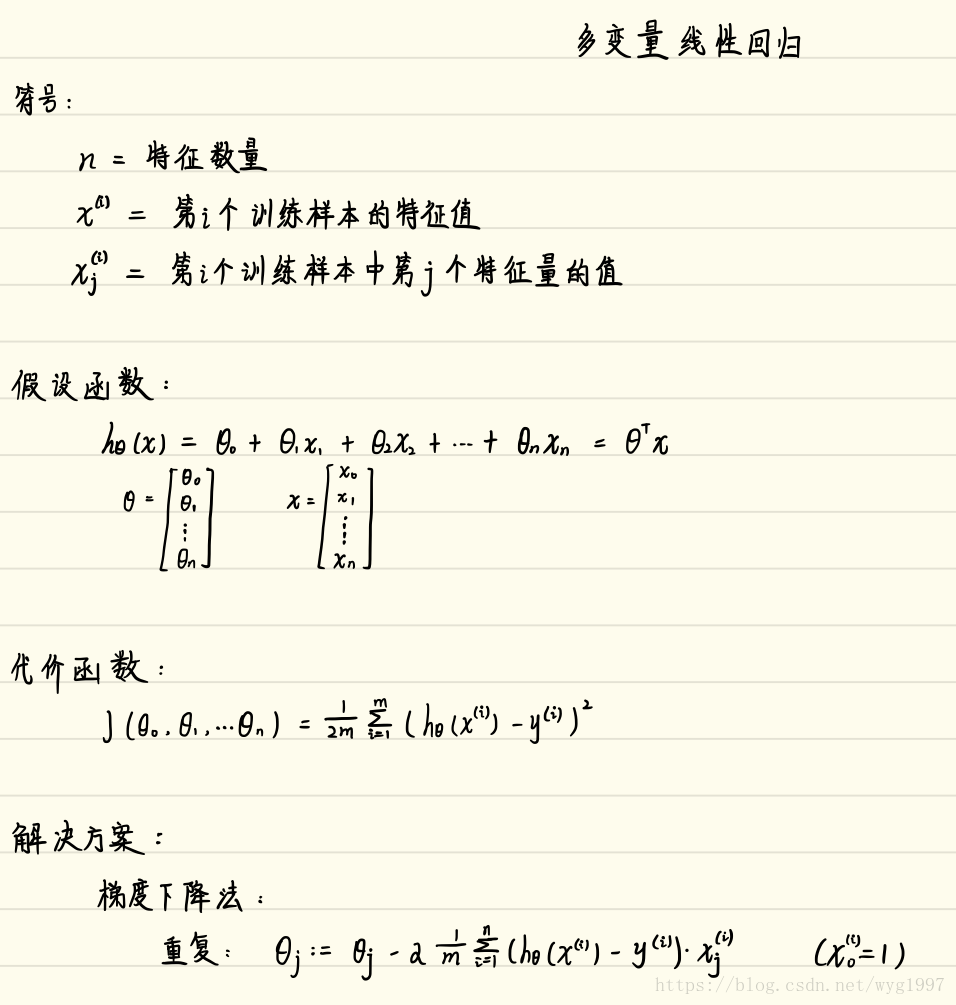 多变量线性回归
符号:
n = 特征数量
x^(i) = 第i个训练样本的特征值
x_j^(i) = 第i个训练样本中第j个特征量的值
假设函数:
h_θ(x) = θ₀ + θ₁x₁ + θ₂x₂ + ⋯ + θ_n x_n = θ^T x
θ = [θ₀ θ₁ ⋮ θ_n] x = [x₀ x₁ ⋮ x_n]
代价函数:
J(θ₀, θ₁, …θ_n) = 1/2m ∑_{i=1}^{m} (h_θ(x^(i)) - y^(i))²
解决方案:
梯度下降法:
重复: θ_j := θ_j - α 1/m ∑_{i=1}^{n} (h_θ(x^(i)) - y^(i)) · x_j^(i) (x₀^(i) = 1)
https://blog.csdn.net/wyg1997